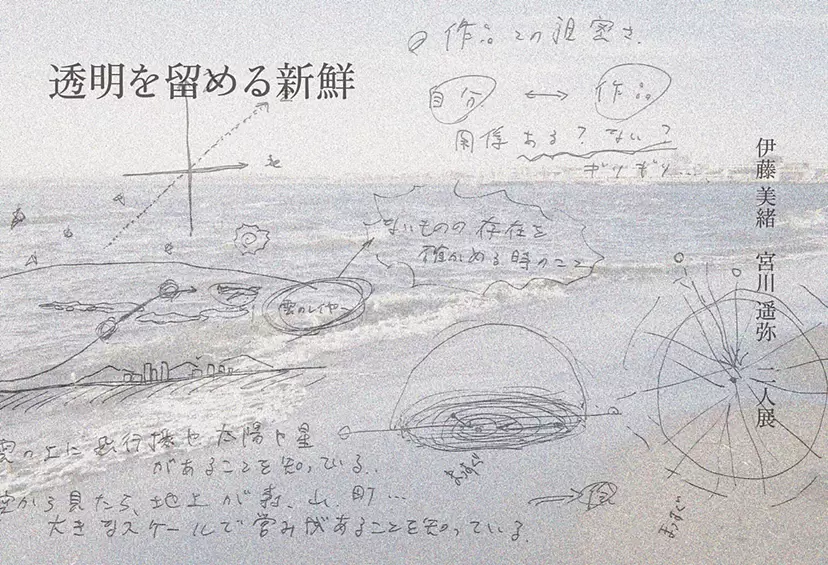 透明を留める新鮮
作品との親密さ
自分 ⟷ 作品
関係ある？ない？
ギリギリ...
伊藤 美緒　宮川 遥弥　二人展
ないものの存在を
確かめる時のこと
雲のレイヤー
雲の上に飛行機や太陽や星
があることを知っている..
空から見たら、地上が森、山、町...
大きなスケールで営みがあることを知っている.
まっすぐ
まっすぐ